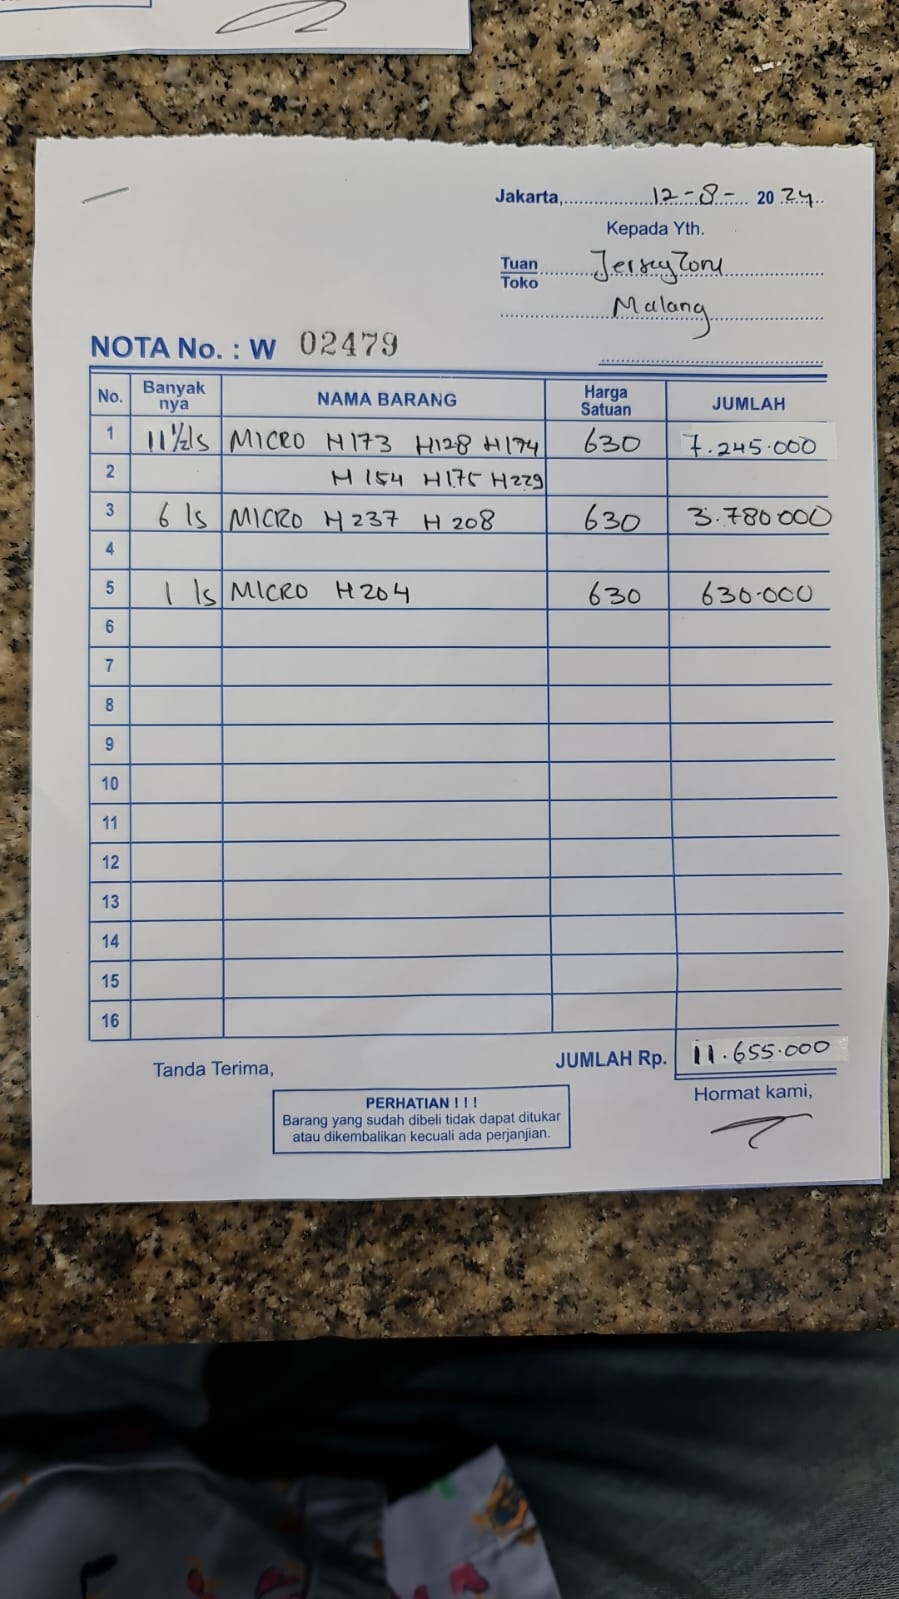 Jakarta, 12-8- 2024
Kepada Yth.
Tuan
Toko
JerseyZone
Malang
NOTA No. : W 02479
No. Banyak nya NAMA BARANG Harga Satuan JUMLAH
1 11½ ls MICRO H173 H128 H174 630 7.245.000
2 H154 H175 H229
3 6 ls MICRO H237 H208 630 3.780.000
4
5 1 ls MICRO H204 630 630.000
6
7
8
9
10
11
12
13
14
15
16
JUMLAH Rp. 11.655.000
Tanda Terima,
Hormat kami,
PERHATIAN ! ! !
Barang yang sudah dibeli tidak dapat ditukar
atau dikembalikan kecuali ada perjanjian.